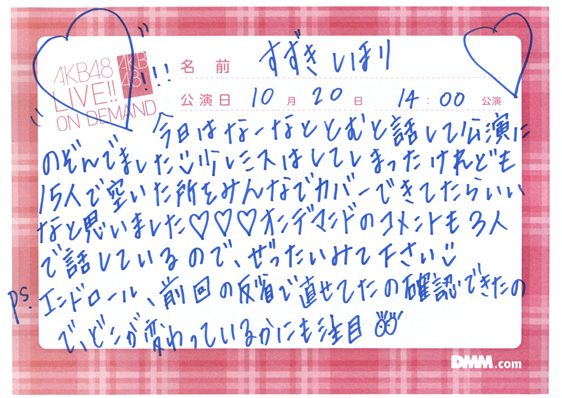 AKB48
LIVE!!
ON DEMAND
AKB
48
!!!
名前 すずきしほり
公演日 10月20日 14:00 公演
今日はなーなととむと話して公演に
のぞんでました 少しミスはしてしまったけれども
15人で空いた所をみんなでカバーできてたらいい
なと思いました♡♡♡オンデマンドのコメントも3人
で話しているので、ぜったいみて下さい
P.S. エンドロール、前回の反省で直せてたの確認できたの
で、どこが変わっているかにも注目
DMM.com